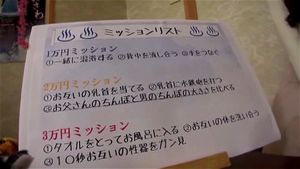 ♨♨ ミッションリスト ♨♨
1万円ミッション
①一緒に混浴する ②背中を流し合う ③手をつなぐ
2万円ミッション
①お互いの乳首を当てる ②乳首に水鉄砲を打つ
③お父さんのちんぽと男のちんぽの大きさを比べる
3万円ミッション
①タオルをとってお風呂に入る ②お互いの体を洗い合う
③10秒お互いの性器をガン見